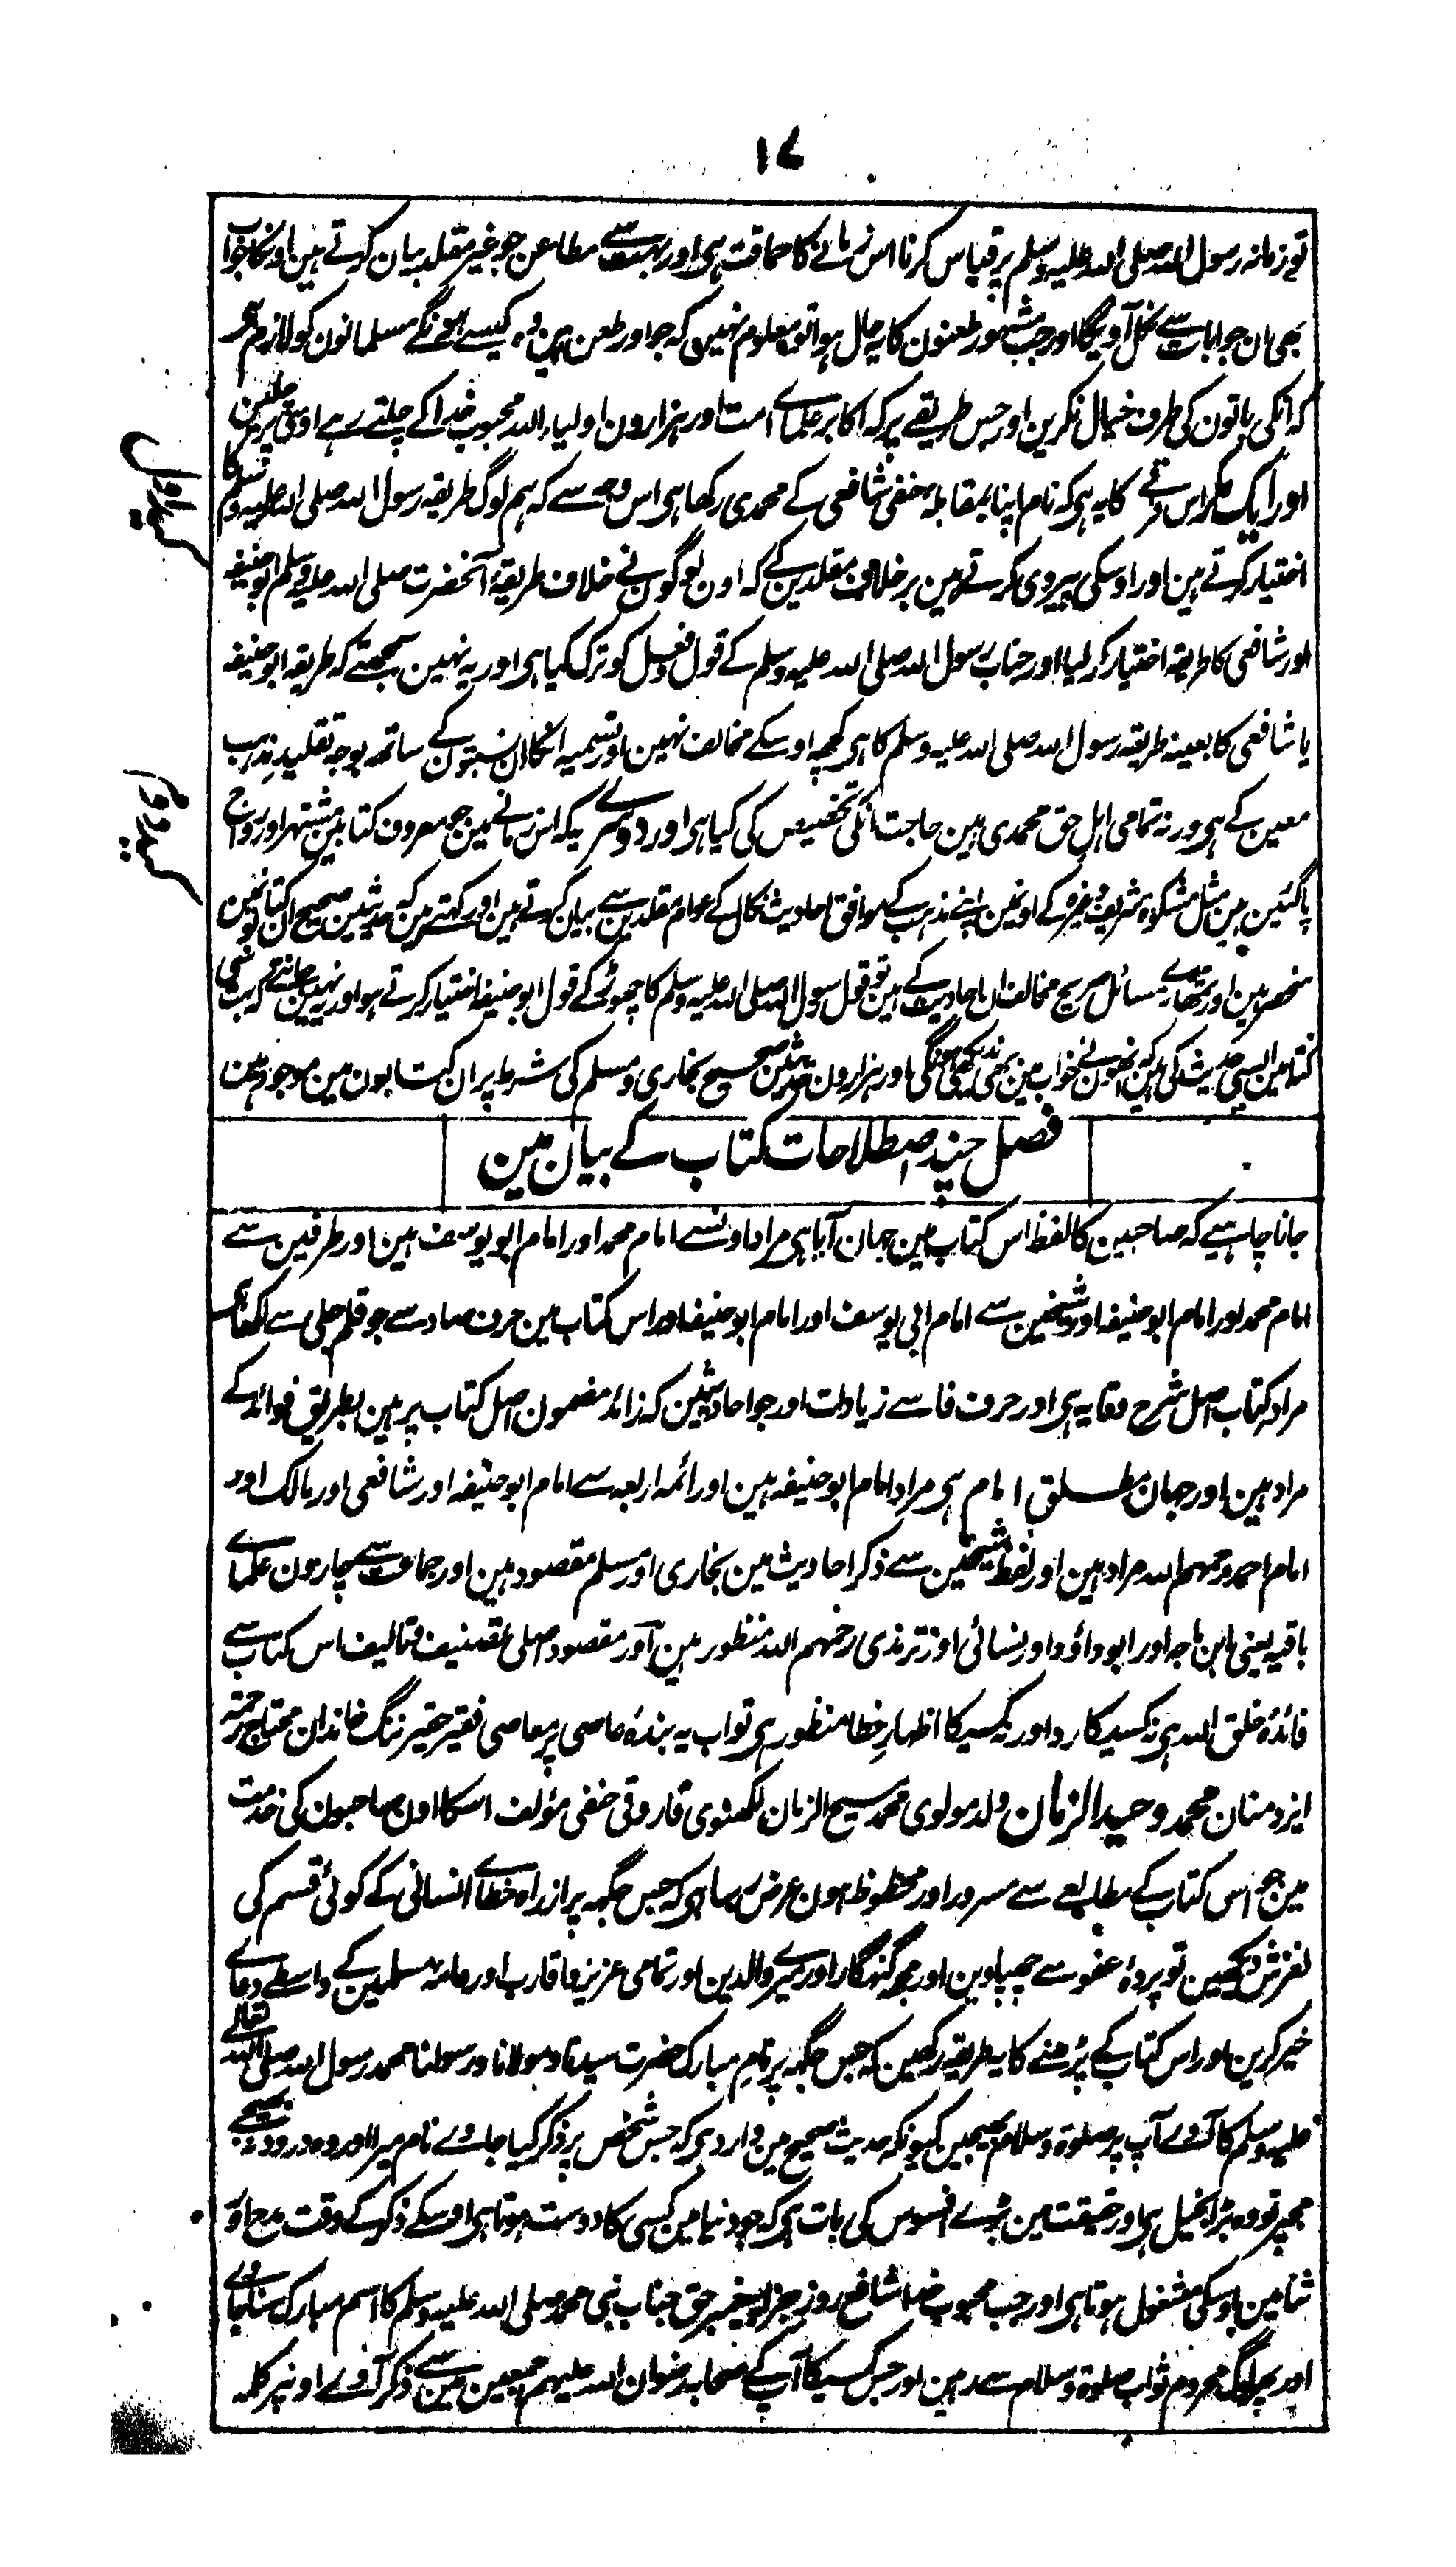 ۱۷
تو زمانہ رسول اللہ صلی اللہ علیہ وسلم پر قیاس کرنا اس زمانے کا حماقت ہی اور بہت سے مطاعن جو غیر مقلد بیان کرتے ہین اونکا جواب
بھی ان جوابات سے نکل آویگا اور جب مشہور طعنون کا یہ حال ہوا تو معلوم نہین کہ جو اور طعن ہین وہ کیسے ہونگے مسلمانون کو لازم ہی
کہ انکی باتون کی طرف خیال نکرین اور جس طریقے پر کہ اکابر علماے امت اور ہزارون اولیاء اللہ محبوب خدا کے چلتے رہے اوسی پر چلین
اور ایک مکر اس فرقے کا یہ ہی کہ نام اپنا بمقابلہ حنفی شافعی کے محمدی رکھا ہی اس وجہ سے کہ ہم لوگ طریقہ رسول اللہ صلی اللہ علیہ وسلم کا
اختیار کرتے ہین اور اوسکی پیروی کرتے ہین بر خلاف مقلدین کے کہ اون لوگون نے خلاف طریقۂ آنحضرت صلی اللہ علیہ وسلم ابو حنیفہ
اور شافعی کا طریقہ اختیار کر لیا اور جناب رسول اللہ صلی اللہ علیہ وسلم کے قول وفعل کو ترک کیا ہی اور یہ نہین سمجھتے کہ طریقہ ابو حنیفہ
یا شافعی کا بعینہ طریقہ رسول اللہ صلی اللہ علیہ وسلم کا ہی کچھ اوسکے مخالف نہین اور تسمیہ انکا ان نسبتون کے ساتھ بوجہ تقلید مذہب
معین کے ہی ورنہ تمامی اہل حق محمدی ہین حاجت انکی تخصیص کی کیا ہی اور دوسرے یہ کہ اس زمانے مین جو معروف کتابین مشتہر اور رواج
پاگئین ہین مثل مشکوۃ شریف وغیرہ کے اونھین اپنے مذہب کے موافق احادیث نکال کے عوام مقلدین سے بیان کرتے ہین اور کہتے ہین کہ حدیثین صحیح ان کتابون
منحصر ہین اور تمھارے مسائل صریح مخالف ان احادیث کے ہین تو قول رسول اللہ صلی اللہ علیہ وسلم کا چھوڑ کے قول ابو حنیفہ اختیار کرتے ہو اور یہ نہین جانتے کہ بہت سی
کتابین ایسی حدیث کی ہین کہ انھون نے خواب مین بھی ندیکھی ہونگی اور ہزارون حدیثین صحیح بخاری ومسلم کی شرط پر ان کتابون مین موجود ہین
فصل چند اصطلاحات کتاب کے بیان مین
جاننا چاہیے کہ صاحبین کا لفظ اس کتاب مین جہان آیا ہی مراد اونسے امام محمد اور امام ابو یوسف ہین اور طرفین سے
امام محمد اور امام ابو حنیفہ اور شیخین سے امام ابی یوسف اور امام ابو حنیفہ اور اس کتاب مین حرف صاد سے جو قلم جلی سے لکھا ہی
مراد کتاب اصل شرح وقایہ ہی اور حرف فا سے زیادات اور جو احادیثین کہ زائد مضمون اصل کتاب پر ہین بطریق فوائد کے
مراد ہین اور جہان مطلق امام ہی مراد امام ابو حنیفہ ہین اور ائمہ اربعہ سے امام ابو حنیفہ اور شافعی اور مالک اور
امام احمد رحمہم اللہ مراد ہین اور لفظ شیخین سے ذکر احادیث مین بخاری اور مسلم مقصود ہین اور جماعت سے چارون علماے
باقیہ یعنی ابن ماجہ اور ابو داؤد اور نسائی اور ترمذی رحمہم اللہ منظور ہین اور مقصود اصلی تصنیف وتالیف اس کتاب سے
فائدہ خلق اللہ ہی نہ کسیکا رد اور نہ کسیکا اظہار خطا منظور ہی تو اب یہ بندۂ عاصی پر معاصی فقیر حقیر ننگ خاندان محتاج رحمۃ
ایزد منان محمد وحید الزمان ولد مولوی محمد مسیح الزمان لکھنوی فاروقی حنفی مؤلف اسکا اون صاحبون کی خدمت
مین جو اس کتاب کے مطالعے سے مسرور اور محظوظ ہون عرض رسا ہی کہ جس جگہہ پر از راہ خطاے انسانی کے کوئی قسم کی
لغزش دیکھین تو پردۂ عفو سے چھپاوین اور مجھ گنہگار اور میرے والدین اور تمامی عزیز واقارب اور عامۂ مسلمین کے واسطے دعاے
خیر کرین اور اس کتاب کے پڑھنے کا یہ طریقہ رکھین کہ جس جگہہ پر نام مبارک حضرت سیدنا ومولانا ورسولنا محمد رسول اللہ صلی اللہ تعالی
علیہ وسلم کا آوے آپ پر صلوۃ وسلام بھیجین کیونکہ حدیث صحیح مین وارد ہی کہ جس شخص پر ذکر کیا جاوے نام میرا اور وہ درود نہ بھیجے
مجھپر تو وہ بڑا بخیل ہی اور حقیقت مین بڑے افسوس کی بات ہی کہ جو دنیا مین کسی کا دوست ہوتا ہی اوسکے ذکر کے وقت مدح اور
ثنا مین اوسکی مشغول ہوتا ہی اور جب محبوب خدا شافع روز جزا پیغمبر حق جناب نبی محمد صلی اللہ علیہ وسلم کا اسم مبارک سنا جاوے
اور پھر لوگ محروم ثواب صلوۃ وسلام سے رہین اور جس کسیکا آپ کے صحابہ رضوان اللہ علیہم اجمعین مین سے ذکر آوے اونپر کلمہ